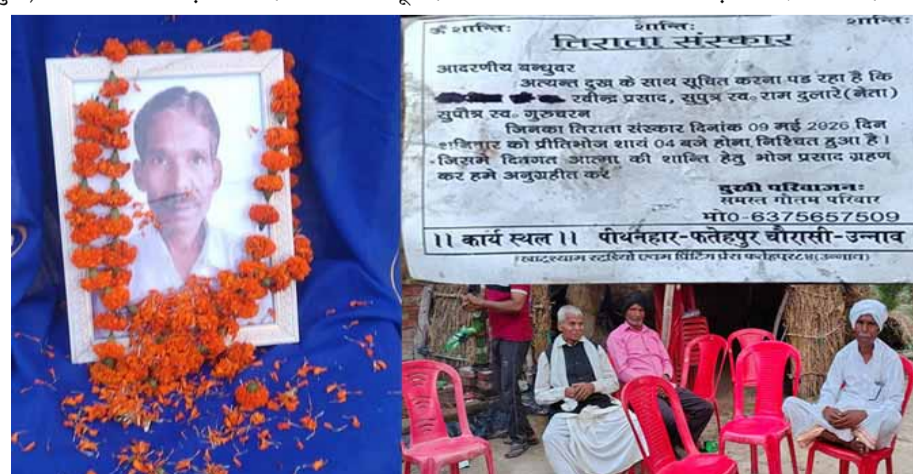 ॐ शान्तिः शान्तिः शान्तिः
तिराता संस्कार
आदरणीय बन्धुवर
अत्यन्त दुख के साथ सूचित करना पड रहा है कि
रवीन्द्र प्रसाद, सुपुत्र स्व० राम दुलारे(नेता)
सुपौत्र स्व० गुरुचरन
जिनका तिराता संस्कार दिनांक 09 मई 2026 दिन
शनिवार को प्रीतिभोज शायं 04 बजे होना निश्चित हुआ है।
जिसमे दिवगत आत्मा की शान्ति हेतु भोज प्रसाद ग्रहण
कर हमे अनुग्रहीत करे
दुखी परिवाजनः
समस्त गौतम परिवार
मो0-6375657509
।। कार्य स्थल ।। पीथनहार-फतेहपुर चौरासी-उन्नाव